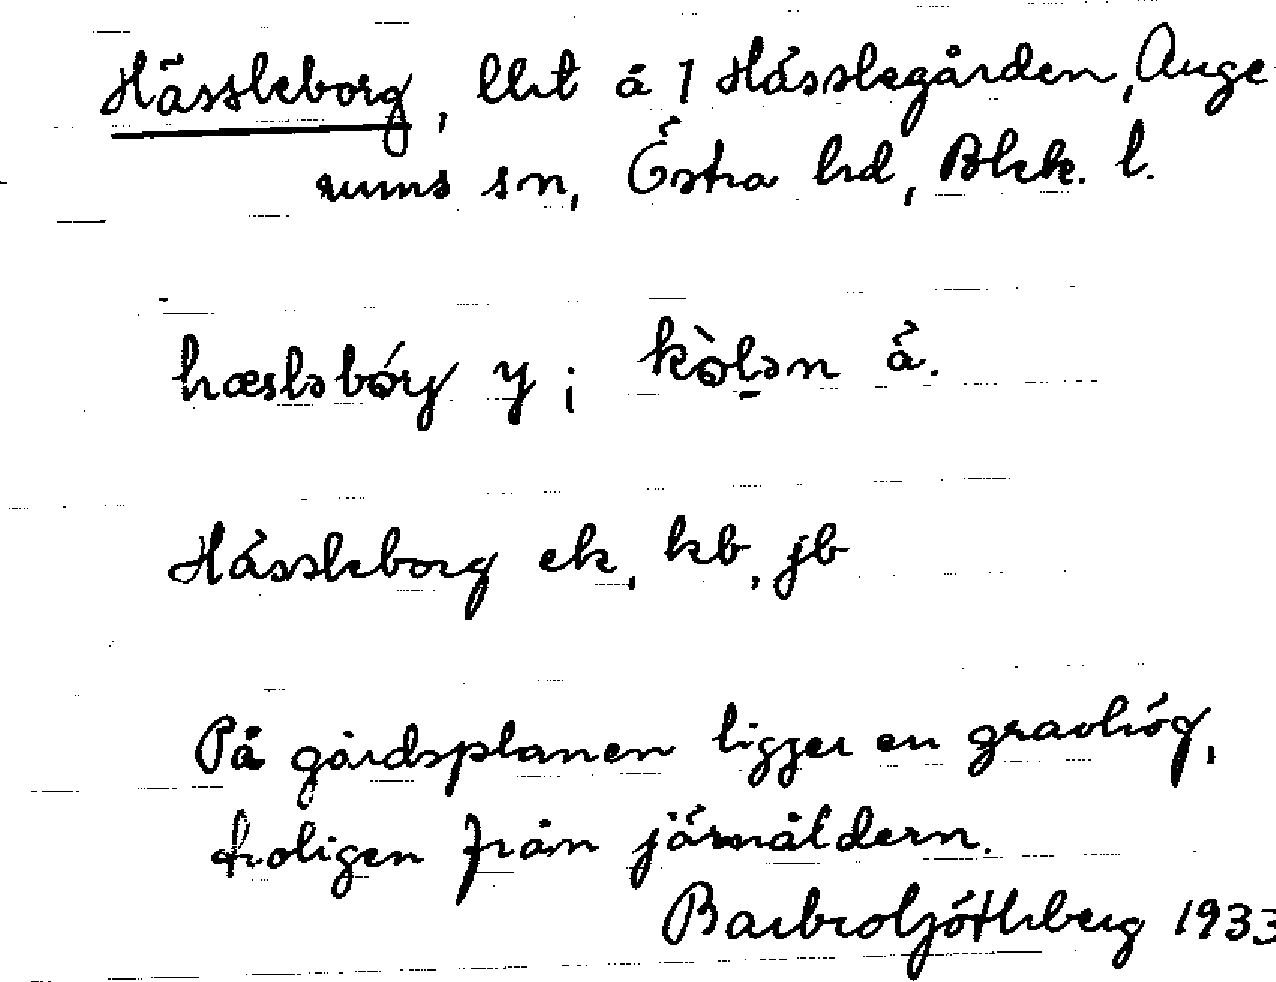 Hässleborg, llit å 1 Hässlegården, Auge
rums sn, Östra hd, Blek. l.
hæsləbórg y ; kòlən ä.
Hässleborg ek, kb, jb
På gårdsplanen ligger en gravhög,
troligen från järnåldern.
Barbro Götherberg 1933